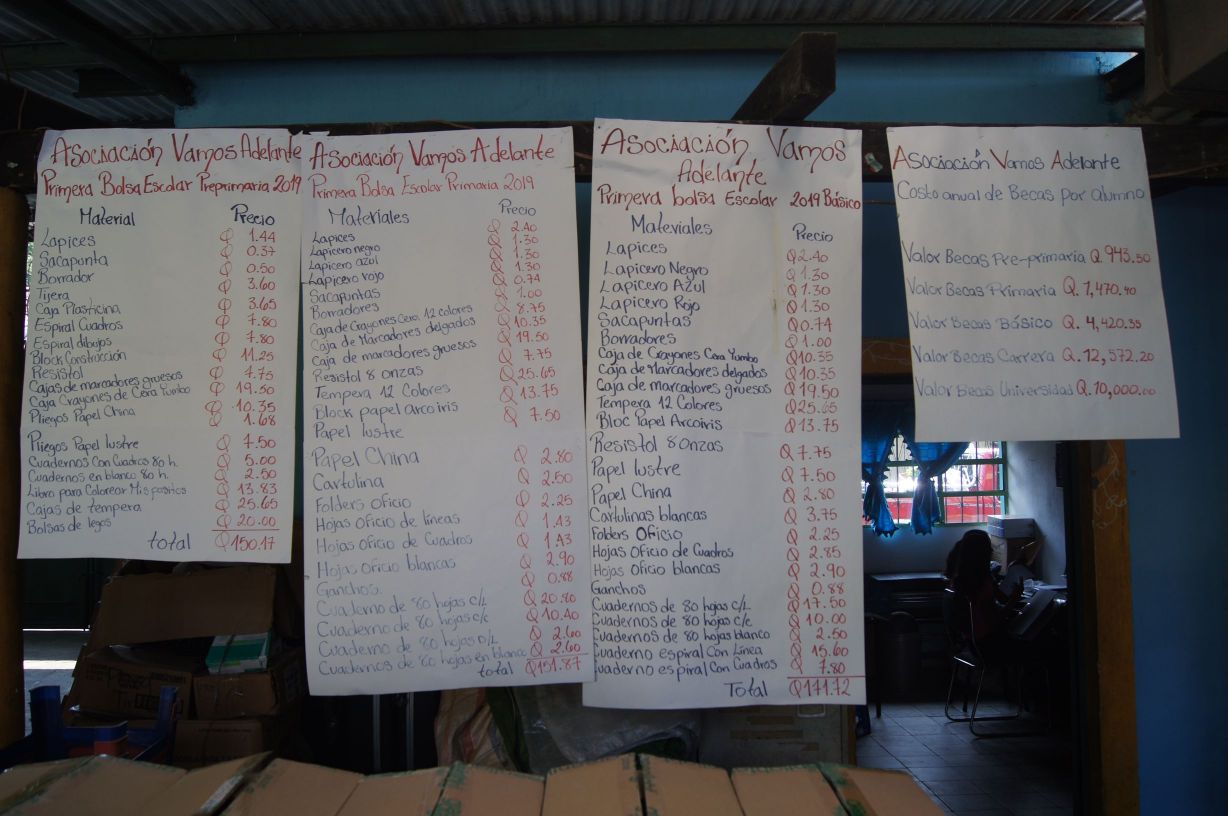 Asociación Vamos Adelante
Primera Bolsa Escolar Preprimaria 2019
Material Precio
Lapices Q 1.44
Sacapunta Q 0.37
Borrador Q 0.50
Tijera Q 3.60
Caja Plasticina Q 3.65
Espiral Cuadros Q 7.80
Espiral dibujos Q 7.80
Block Construcción Q 11.25
Resistol Q 4.75
Cajas de marcadores gruesos Q 19.50
Caja Crayones de Cera Yumbo Q 10.35
Pliegos Papel China Q 1.68
Pliegos Papel lustre Q 7.50
Cuadernos Con Cuadros 80 h. Q 5.00
Cuadernos en blanco 80 h. Q 2.50
Libro para Colorear Mis pasitos Q 13.83
Cajas de tempera Q 25.65
Bolsas de legos Q 20.00
total Q150.17
Asociación Vamos Adelante
Primera Bolsa Escolar Primaria 2019
Materiales Precio
Lapices Q 2.40
Lapicero negro Q 1.30
Lapicero azul Q 1.30
Lapicero rojo Q 1.30
Sacapuntas Q 0.74
Borradores Q 1.00
Caja de Crayones Cera 12 colores Q 8.75
Caja de Marcadores delgados Q 10.35
Caja de marcadores gruesos Q 19.50
Resistol 8 onzas Q 7.75
Tempera 12 Colores Q 25.65
Block papel arcoiris Q 13.75
Papel lustre Q 7.50
Papel China Q 2.80
Cartulina Q 2.50
Folders oficio Q 2.25
Hojas oficio de líneas Q 1.43
Hojas oficio de Cuadros Q 1.43
Hojas oficio blancas Q 2.90
Ganchos Q 0.88
Cuaderno de 80 hojas c/L Q 20.80
Cuaderno de 80 hojas c/c Q 10.40
Cuaderno de 80 hojas D/L Q 2.60
Cuadernos de 80 hojas en blanco Q 2.60
total Q151.87
Asociación Vamos
Adelante
Primera bolsa Escolar 2019 Básico
Materiales Precio
Lapices Q2.40
Lapicero Negro Q 1.30
Lapicero Azul Q 1.30
Lapicero Rojo Q 1.30
Sacapuntas Q 0.74
Borradores Q 1.00
Caja de Crayones Cera Yumbo Q10.35
Caja de Marcadores delgados Q10.35
Caja de marcadores gruesos Q19.50
Tempera 12 Colores Q25.65
Bloc Papel Arcoiris Q13.75
Resistol 8 onzas Q 7.75
Papel lustre Q 7.50
Papel China Q 2.80
Cartulinas blancas Q 3.75
Folders Oficio Q 2.25
Hojas Oficio de Cuadros Q 2.85
Hojas Oficio blancas Q 2.90
Ganchos Q 0.88
Cuadernos de 80 hojas c/L Q 17.50
Cuadernos de 80 hojas c/c Q 10.00
Cuadernos de 80 hojas blanco Q 2.50
Cuaderno espiral Con Línea Q 15.60
Cuaderno espiral Con Cuadros Q 7.80
Total Q171.72
Asociación Vamos Adelante
Costo anual de Becas por alumno
Valor Becas Pre-primaria Q. 943.50
Valor Becas Primaria Q. 1,470.40
Valor Becas Básico Q. 4,420.35
Valor Becas Carrera Q. 12,572.20
Valor Becas Universidad Q. 10,000.00